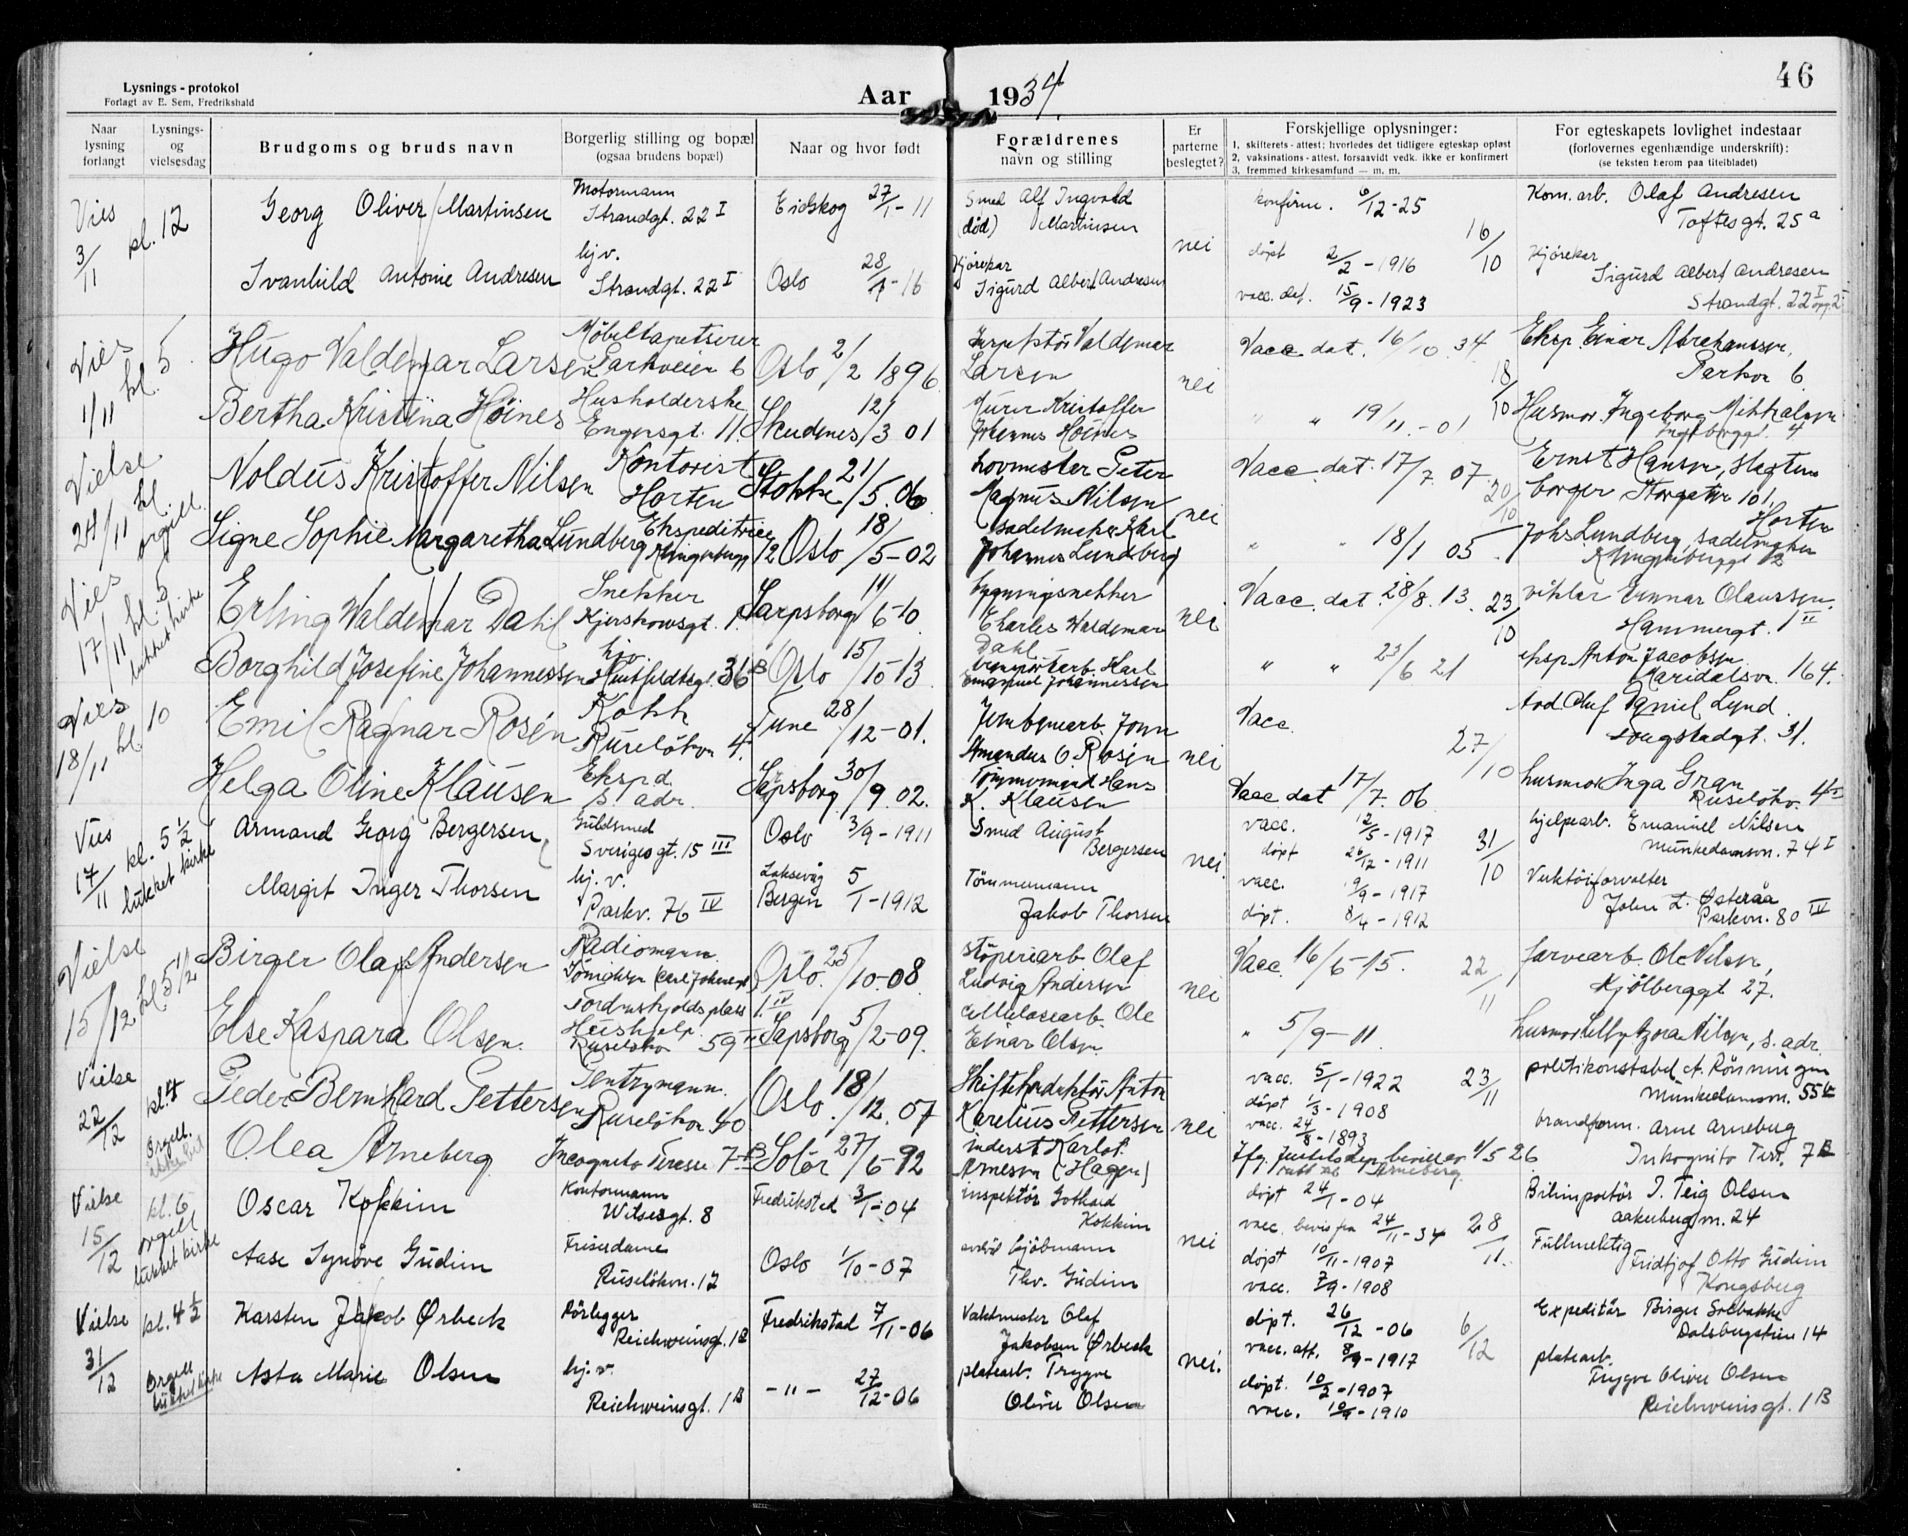 46
Lysnings-protokol
Forlagt av E. Sem, Fredrikshald
Aar 1934.
Naar lysning forlangt
Lysnings- og vielsesdag
Brudgoms og bruds navn
Borgerlig stilling og bopæl (ogsaa brudens bopæl)
Naar og hvor født
Forældrenes navn og stilling
Er parterne beslegtet?
Forskjellige oplysninger:
1, skifterets-attest; hvorledes det tidligere egteskap opløst
2, vaksinations-attest, forsaavidt vedk. ikke er konfirmert
3, fremmed kirkesamfund — m. m.
For egteskapets lovlighet indestaar
(forlovernes egenhændige underskrift):
(se teksten herom paa titelbladet)
Vies 3/11 kl. 12
Georg Oliver Martinsen
Motormann
Strandgt. 22 I
Eidskog 27/1-11
Smed Alf Ingvald
(død) Martinsen
nei
konfirm. 6/12-25
16/10
Kom. arb. Olaf Andresen
Toftesgt. 25 a
Ivanhild Antonie Andresen
hj v.
Strandgt. 22 I
Oslo 28/1-16
Kjørekar
Sigurd Albert Andresen
døpt 2/2-1916
vacc. dat. 15/9-1923
Kjørekar
Sigurd Albert Andresen
Strandgt. 22 I
Vies 1/11 kl. 5
Hugo Valdemar Larsen
Møbeltapetserer
Parkveien 6
Oslo 2/2 1896
Valdemar
Larsen
nei
Vacc. dat. 16/10 34
18/10
Eksp. Einar Abrahamsen,
Parkvn 6
Bertha Kristina Höines
Husholderske
Engersgt. 11.
Skudenes 12/3 01
Murer Kristoffer
Johannes Höines
" " 19/11.-01
Husmor Ingeborg Mikkalsen
Ingeborggt. 4
Vielse 24/11 kl orgell.
Noldus Kristoffer Nilsen
Kontorist
Horten
Stokke 21/5.06
Lovmester Peter
Magnus Nilsen
nei
Vacc. dat. 17/7. 07
20/10
Ernst Hansen, slagtem
borger Storgaten 101.
Horten
Signe Sophie Margaretha Lundberg
Ekspeditrice
Klingenberggt 2
Oslo 18/5-02
sadelmaker Karl
Johannes Lundberg
" " 18/1 05
Johs Lundberg, sadelmaker
Klingenberggt 2
Vies 17/11 kl. 5 lukket kirke
Erling Waldemar Dahl
Snekker
Kjerskowsgt. 1.
Sarpsborg 11/6-10
bygningssnekker
Charles Waldemar
Dahl
nei
Vacc. dat. 28/8. 13.
23/10
Gunnar Olaussen,
Hammergt. 1 II
Borghild Josefine Johannessen
hjv
Huitfeldtsgt. 36 B
Oslo 15/10-13
transportarb. Karl
Emanuel Johannessen
" " 23/6 21
eksp Anton Jacobsen
Maridalsvn. 164.
Vies 18/11 kl. 10
Emil Ragnar Rosén
Kokk
Ruselökvn 4.
Tune 28/12-01.
Jernbanearb. Johan
Amandus O. Rosén
nei
Vacc.
27/10
Oluf Daniel Lund.
Sougstadgt. 31.
Helga Oline Klausen
Ekspd.
s. adr.
Sarpsborg 30/9. 02.
Tömmermand Hans
K. Klausen
Vacc dat 17/7. 06
husmor Inga Gran
Ruselökv. 4
Vies 17/11 kl. 5 1/2 lukket kirke
Armand Georg Bergersen
Guldsmed
Sverigesgt. 15 III
Oslo 3/9-1911
Smed August
Bergersen
nei.
vacc. 12/5-1917
døpt 26/12-1911
31/10
hjelpearb. Emanuel Nilsen
Munkedamsvn. 74 I
Margit Inger Thorsen
hj. v.
Parkv. 76 IV
Laksevåg
Bergen 5/1-1912
Tömmermann
Jakob Thorsen
vacc. 9/9-1917
döpt. 8/4-1912
Verktöiforvalter
John L. Østeraa
Parkvn. 80 IV
Vielse 15/12 kl 5 1/2
Birger Olaf Andersen
Radiomann.
Tordenskjolds plass 1 IV
Oslo. 25/10-08
støperiarb Olaf
Ludvig Andersen
nei
Vacc 16/6-15.
22/11
farvearb. Ole Nilsen,
Kjölberggt 27.
Else Kaspara Olsen.
Hushjelp.
Ruselökvn 59
Sapsborg 5/2-09.
cellulosearb. Ole
Einar Olsen
" 5/9-11
husmor Lilly Agora Nilsen, s. adr.
Vielse 22/12 kl 4 Orgell.
Peder Bernhard Pettersen
Pentrymann.
Ruselökvn 40
Oslo. 18/12. 07
Skifteholdektör Anton
Karelius Pettersen
nei
vacc. 5/1-1922
döpt 1/3-1908
23/11
politikonstabel A. Rönningen
Munkedamsvn. 55
Olea Arneberg
Incognito Terasse 7 B
Solör 27/6-92
inderst Karl
Arnesen (Hagen)
vacc. 24/8-1893
Jfg. Justitsdep. bevill av 1/5 26
Arneberg
brandform. Arne Arneberg
Inkognito Terr. 7 B
Vielse 15/12 kl. 6 orgell lukket kirke
Oscar Kokkim
Kontormann
Witsesgt. 8
Fredrikstad 3/1-04
inspektör Gothard
Kokkim
nei
döpt 24/1-04
vacc. bevis fra 24/11-34
28/11.
Bilimportör J. Teig Olsen
Aakerbergvn. 24
Aase Synöve Gudim
Friserdame
Ruselökvn. 12
Oslo 1/10-07
kjöbmann
Thv. Gudim
döpt 10/11-1907
vacc. 7/9-1908
Fullmektig
Fridtjof Otto Gudim
Kongsberg
Vielse 31/12 kl. 4 1/2 Orgell lukket kirke
Karsten Jakob Ørbeck
Rörlegger
Reichweinsgt. 1 B
Fredrikstad 7/11-06
Vaktmester Olaf
Jakobsen Ørbeck
nei.
döpt. 26/12-06
vacc. att. 8/9-1917
6/12
Expeditör Birger Solbakke
Dalsbergstien 14
Asta Marie Olsen
hj. v.
Reichweinsgt. 1 B
-"- 27/12-06
platearb. Trygve
Oliver Olsen
döpt. 10/2-1907
vacc. 10/9-1910
platearb.
Trygve Oliver Olsen
Reichweinsgt. 1 B